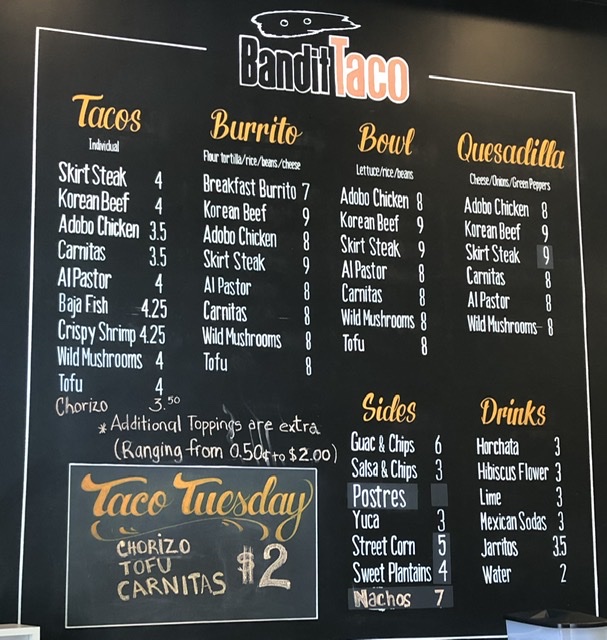 Bandit Taco
Tacos
Individual
Skirt Steak 4
Korean Beef 4
Adobo Chicken 3.5
Carnitas 3.5
Al Pastor 4
Baja Fish 4.25
Crispy Shrimp 4.25
Wild Mushrooms 4
Tofu 4
Chorizo 3.50
Burrito
Flour tortilla/rice/beans/cheese
Breakfast Burrito 7
Korean Beef 9
Adobo Chicken 8
Skirt Steak 9
Al Pastor 8
Carnitas 8
Wild Mushrooms 8
Tofu 8
Bowl
Lettuce/rice/beans
Adobo Chicken 8
Korean Beef 9
Skirt Steak 9
Al Pastor 8
Carnitas 8
Wild Mushrooms 8
Tofu 8
Quesadilla
Cheese/Onions/Green Peppers
Adobo Chicken 8
Korean Beef 9
Skirt Steak 9
Carnitas 8
Al Pastor 8
Wild Mushrooms 8
* Additional Toppings are extra
(Ranging from 0.50¢ to $2.00)
Taco Tuesday
CHORIZO
TOFU
CARNITAS
$2
Sides
Guac & Chips 6
Salsa & Chips 3
Postres
Yuca 3
Street Corn 5
Sweet Plantains 4
Nachos 7
Drinks
Horchata 3
Hibiscus Flower 3
Lime 3
Mexican Sodas 3
Jarritos 3.5
Water 2